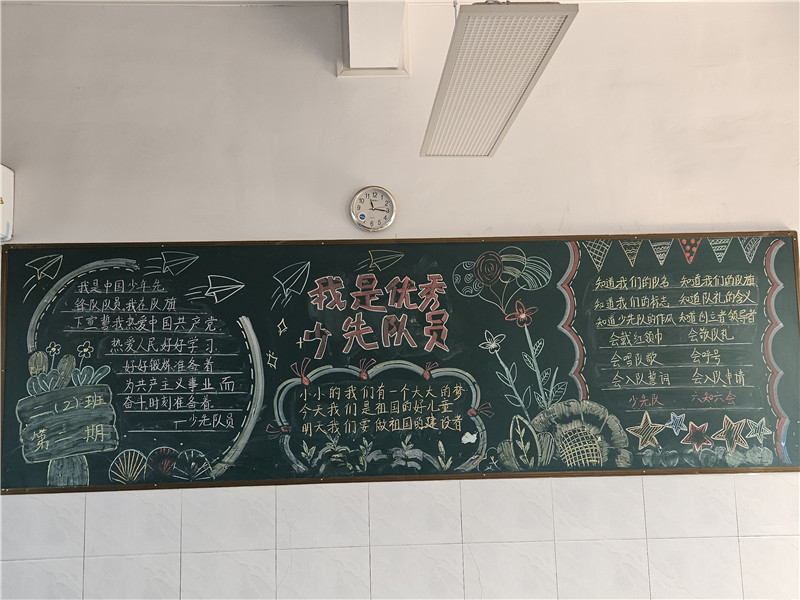 我是中国少年先
锋队队员,我在队旗
下宣誓我热爱中国共产党
热爱人民好好学习
好好锻炼准备着
为共产主义事业而
奋斗时刻准备着。
—少先队员
一(2)班
第二期
我是优秀
少先队员
小小的我们有一个大大的梦
今天我们是祖国的好儿童
明天我们要做祖国的建设者
知道我们的队名 知道我们的队旗
知道我们的标志 知道队礼的含义
知道少先队的作风 知道创立者领导者
会戴红领巾 会敬队礼
会唱队歌 会呼号
会入队誓词 会入队申请
少先队 六知六会